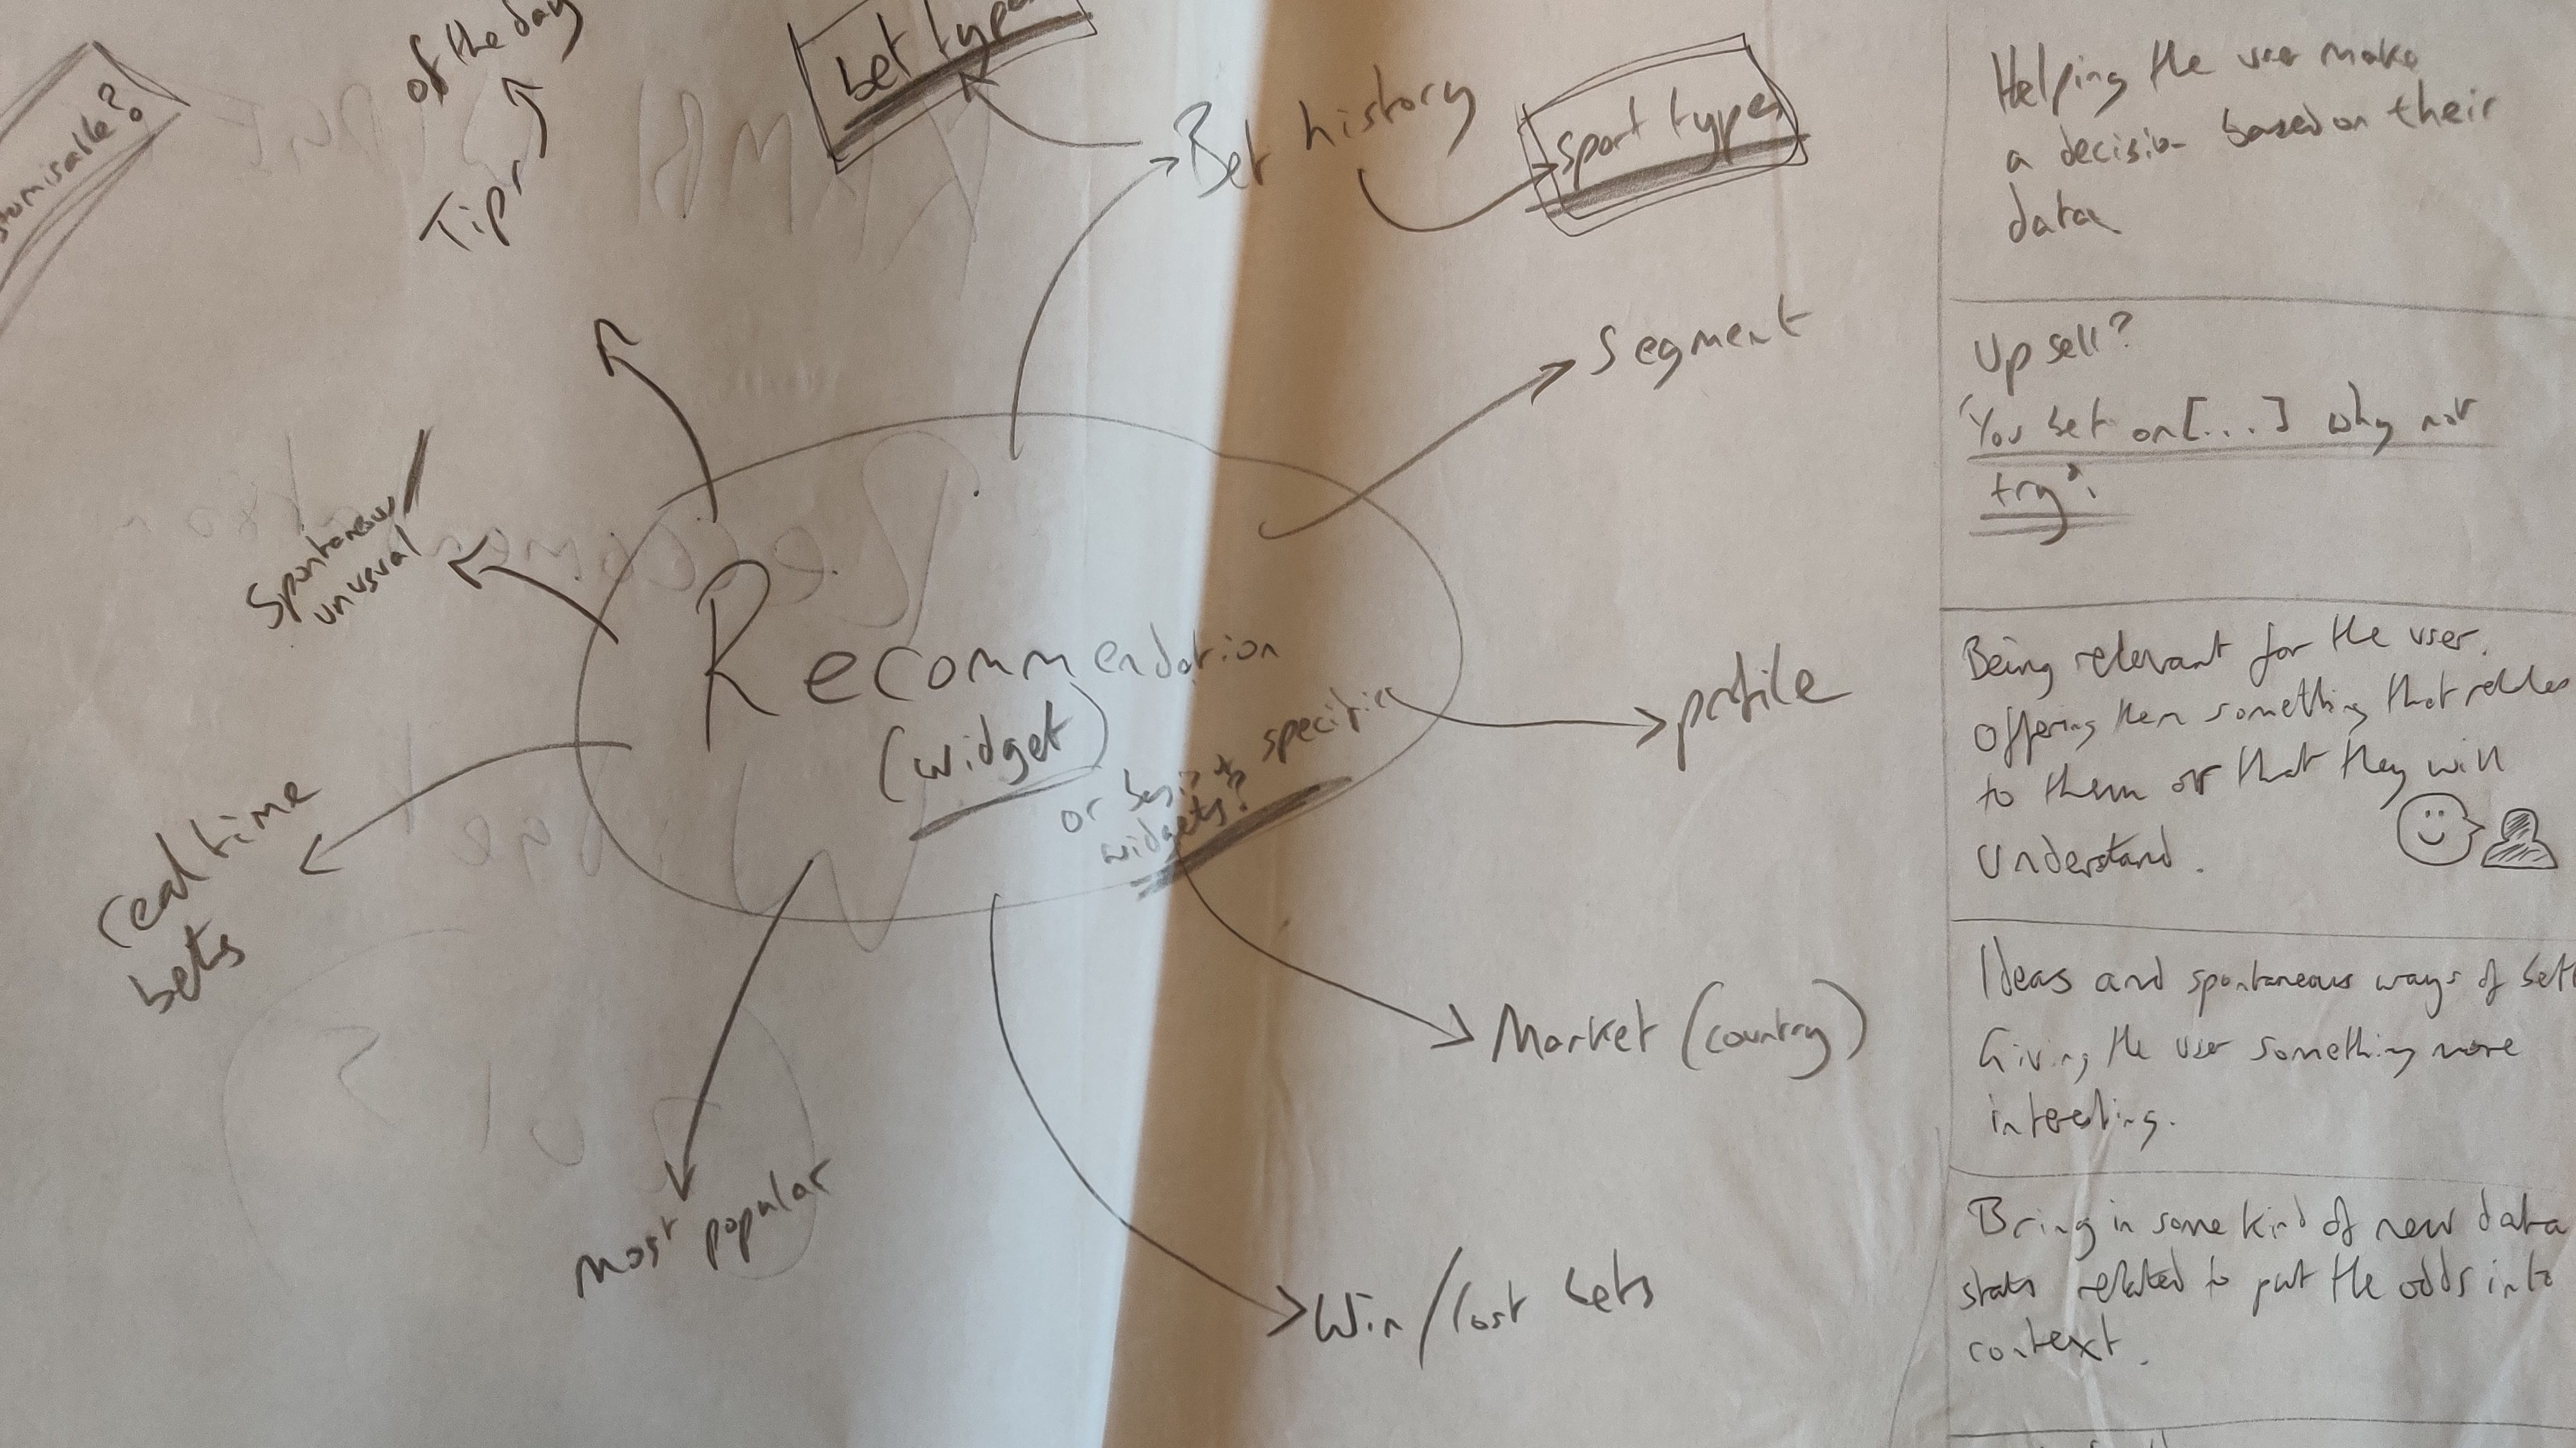 of the day
Tips
bet types
Bet history
sport types
Segment
Spontaneous/
unusual
Recommendation
(widget)
or specific
widgets?
profile
real time
bets
Market (country)
most popular
Win/lost bets
Helping the user make
a decision based on their
data
Up sell?
'You bet on [...] why not
try?'
Being relevant for the user.
Offering them something that relates
to them or that they will
understand.
Ideas and spontaneous ways of
Giving the user something more
interesting.
Bring in some kind of new data
stats related to put the odds into
context.